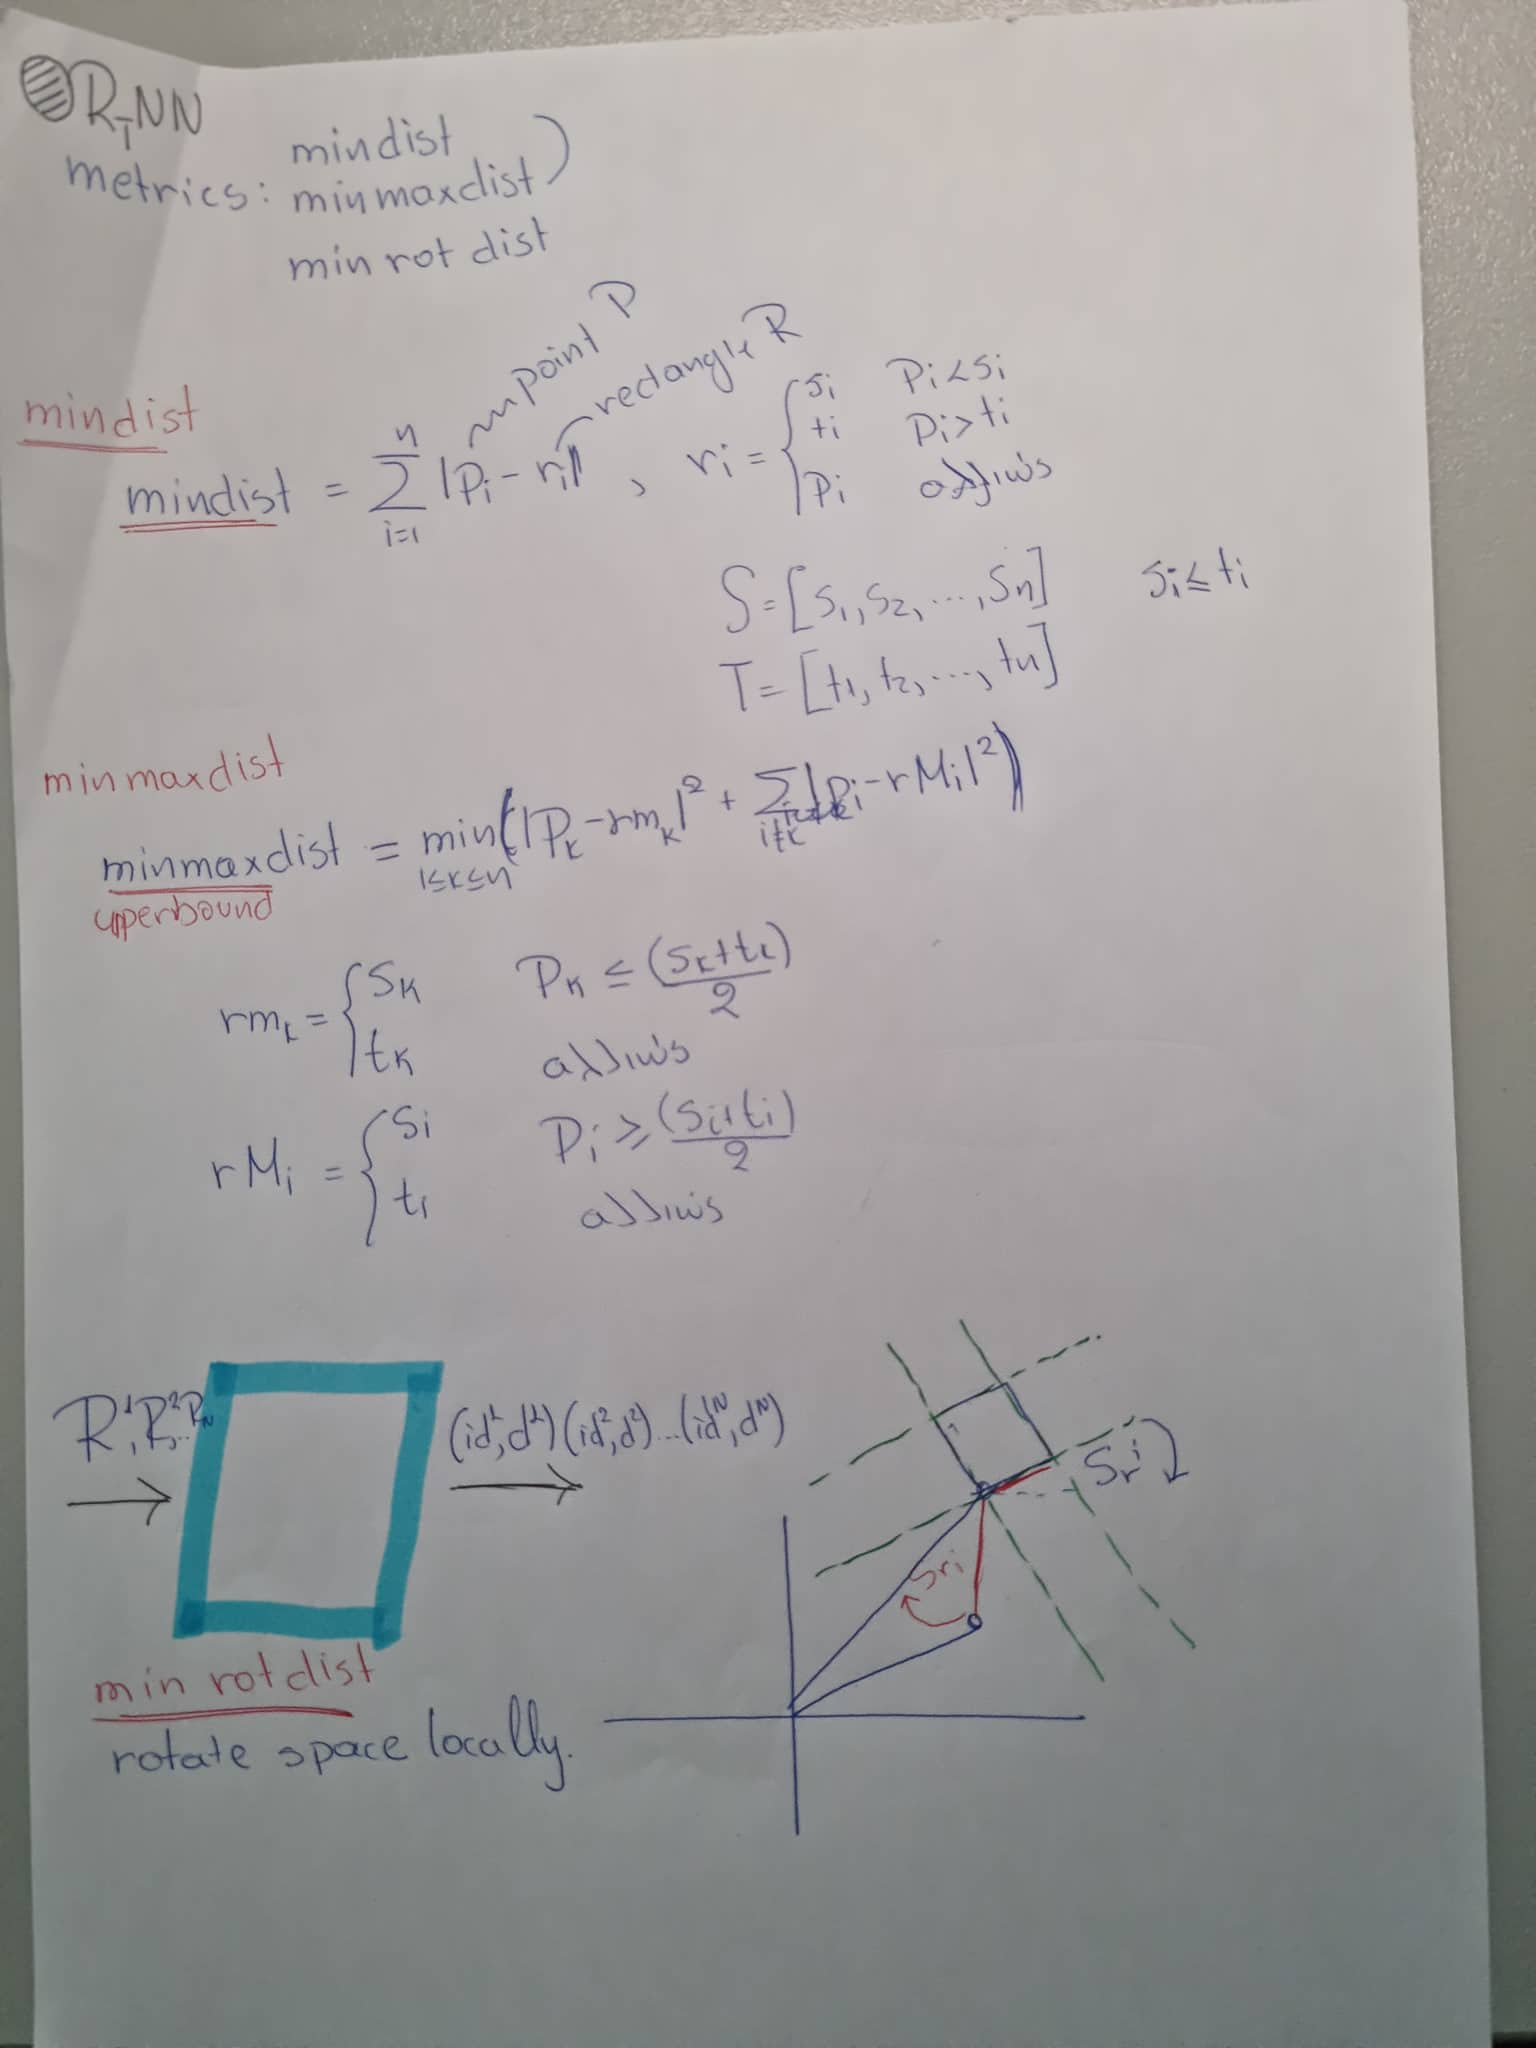 R_TNN
metrics: mindist
minmaxdist )
min rot dist
point P
rectangle R
mindist
mindist = Σ_{i=1}^{n} |Pi - ri|, ri = { si Pi<si
ti Pi>ti
Pi αλλιώς
S=[s1, s2, ..., sn] si≤ti
T=[t1, t2, ..., tn]
minmaxdist
minmaxdist = min_{1≤k≤n} (|Pk - rmk|² + Σ_{i≠k} |Pi - rMi|²)
upperbound
rmk = { sk Pk ≤ (sk+tk)/2
tk αλλιώς
rMi = { si Pi ≥ (si+ti)/2
ti αλλιώς
R¹, R², ... Rᴺ
(id¹, d¹) (id², d²) ... (idᴺ, dᴺ)
Sri
Sri
min rot dist
rotate space locally.